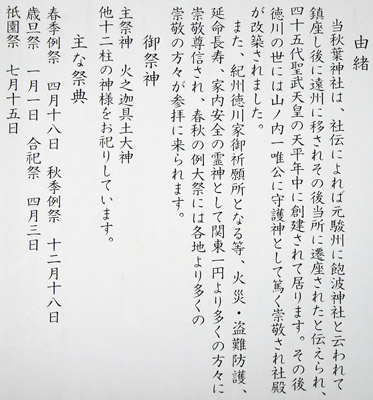 由緒
当秋葉神社は、社伝によれば元駿州に飽波神社と云われて
鎮座し後に遠州に移されその後当所に遷座されたと伝えられ、
四十五代聖武天皇の天平年中に創建されて居ります。その後
徳川の世には山ノ内一唯公に守護神として篤く崇敬され社殿
が改築されました。
また、紀州徳川家御祈願所となる等、火災・盗難防護、
延命長寿、家内安全の霊神として関東一円より多くの方々に
崇敬尊信され、春秋の例大祭には各地より多くの
崇敬の方々が参拝に来られます。
御祭神
主祭神 火之迦具土大神
他十二柱の神様をお祀りしています。
主な祭典
春季例祭 四月十八日 秋季例祭 十二月十八日
歳旦祭 一月一日 合祀祭 四月三日
祇園祭 七月十五日